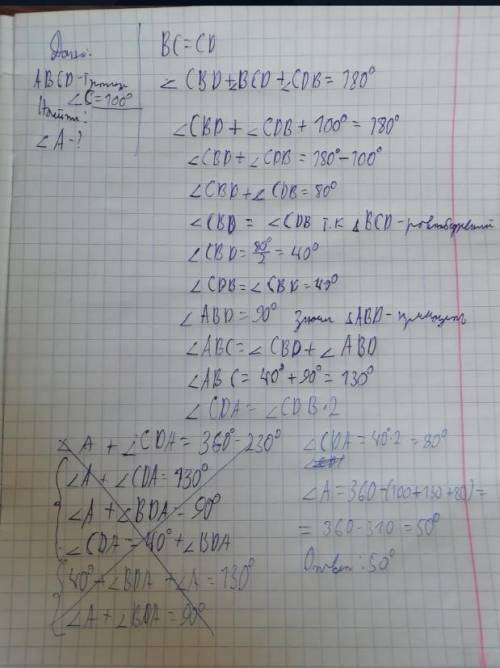 Дано:
ABCD-трапец
∠C=100°
Найти:
∠A-?
BC=CD
∠CBD+∠BCD+∠CDB=180°
∠CBD+∠CDB+100°=180°
∠CBD+∠CDB=180°-100°
∠CBD+∠CDB=80°
∠CBD=∠CDB т.к △BCD-равнобедренный
∠CBD=80°/2=40°
∠CDB=∠CBD=40°
∠ABD=90° значит △ABD-прямоуголь
∠ABC=∠CBD+∠ABD
∠ABC=40°+90°=130°
∠CDA=∠CDB·2
∠A+∠CDA=360°-230°
∠A+∠CDA=130°
∠A+∠BDA=90°
∠CDA=40°+∠BDA
40°+∠BDA+∠A=130°
∠A+∠BDA=90°
∠CDA=40°·2=80°
∠A=360-(100+130+80)=
=360-310=50°
Ответ:50°